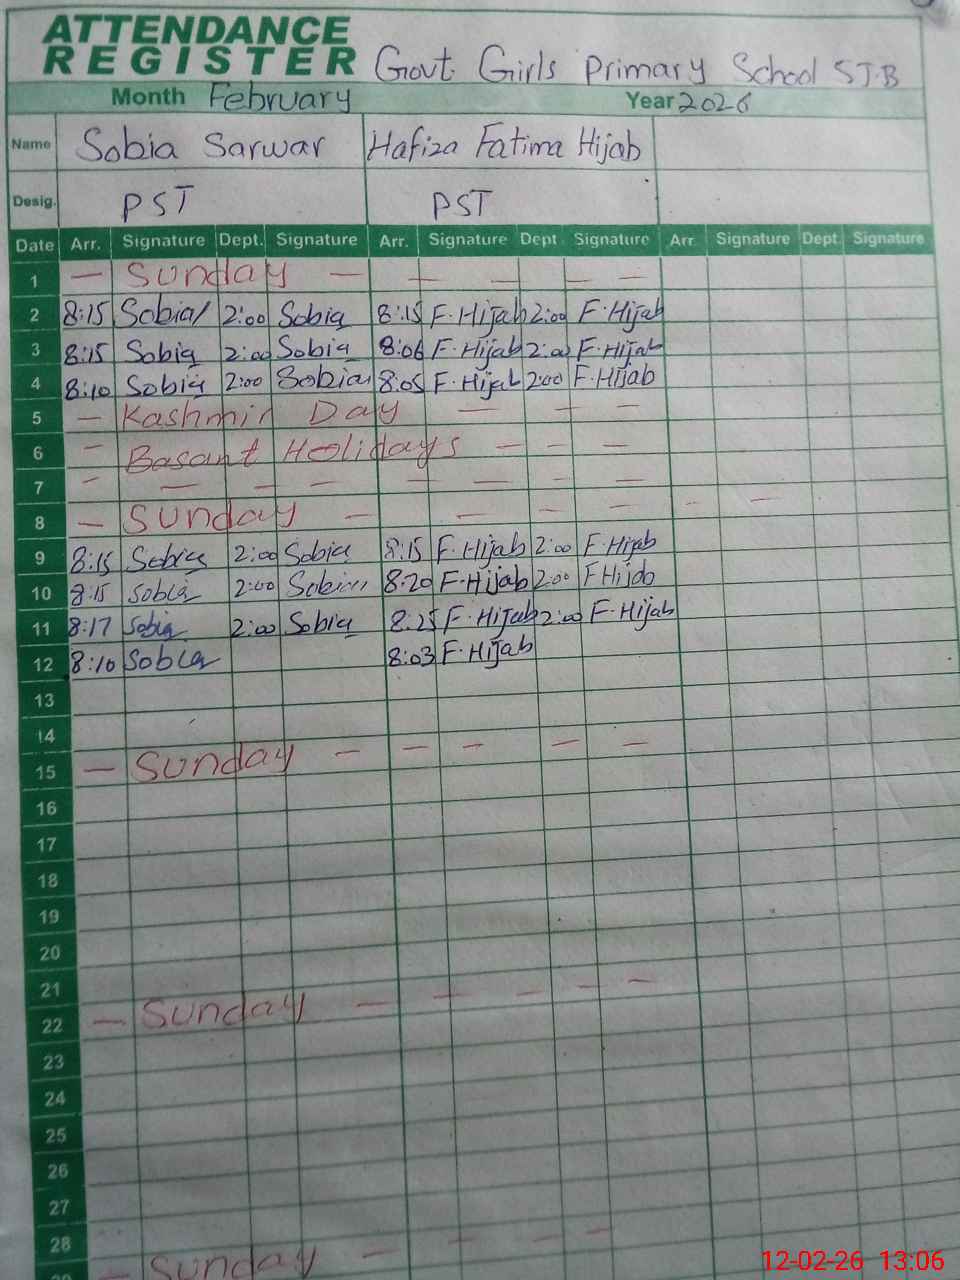 ATTENDANCE
REGISTER Govt. Girls Primary School STB
Month February Year 2026
Name Sobia Sarwar Hafiza Fatima Hijab
Desig. PST PST
Date Arr. Signature Dept. Signature Arr. Signature Dept. Signature Arr. Signature Dept. Signature
1 — Sunday — — — — —
2 8:15 Sobia 2:00 Sobia 8:15 F.Hijab 2:00 F.Hijab
3 8:15 Sobia 2:00 Sobia 8:06 F.Hijab 2:00 F.Hijab
4 8:10 Sobia 2:00 Sobia 8:05 F.Hijab 2:00 F.Hijab
5 — Kashmir Day — — —
6 — Basant Holidays — — —
7 — — — — — — — —
8 — Sunday — — — — — —
9 8:15 Sobia 2:00 Sobia 8:15 F.Hijab 2:00 F.Hijab
10 8:15 Sobia 2:00 Sobia 8:20 F.Hijab 2:00 F Hijab
11 8:17 Sobia 2:00 Sobia 8:25 F.Hijab 2:00 F.Hijab
12 8:10 Sobia 8:03 F.Hijab
13
14
15 — Sunday — — — — —
16
17
18
19
20
21
22 — Sunday — — — — —
23
24
25
26
27
28
— Sunday — — — —
12-02-26 13:06